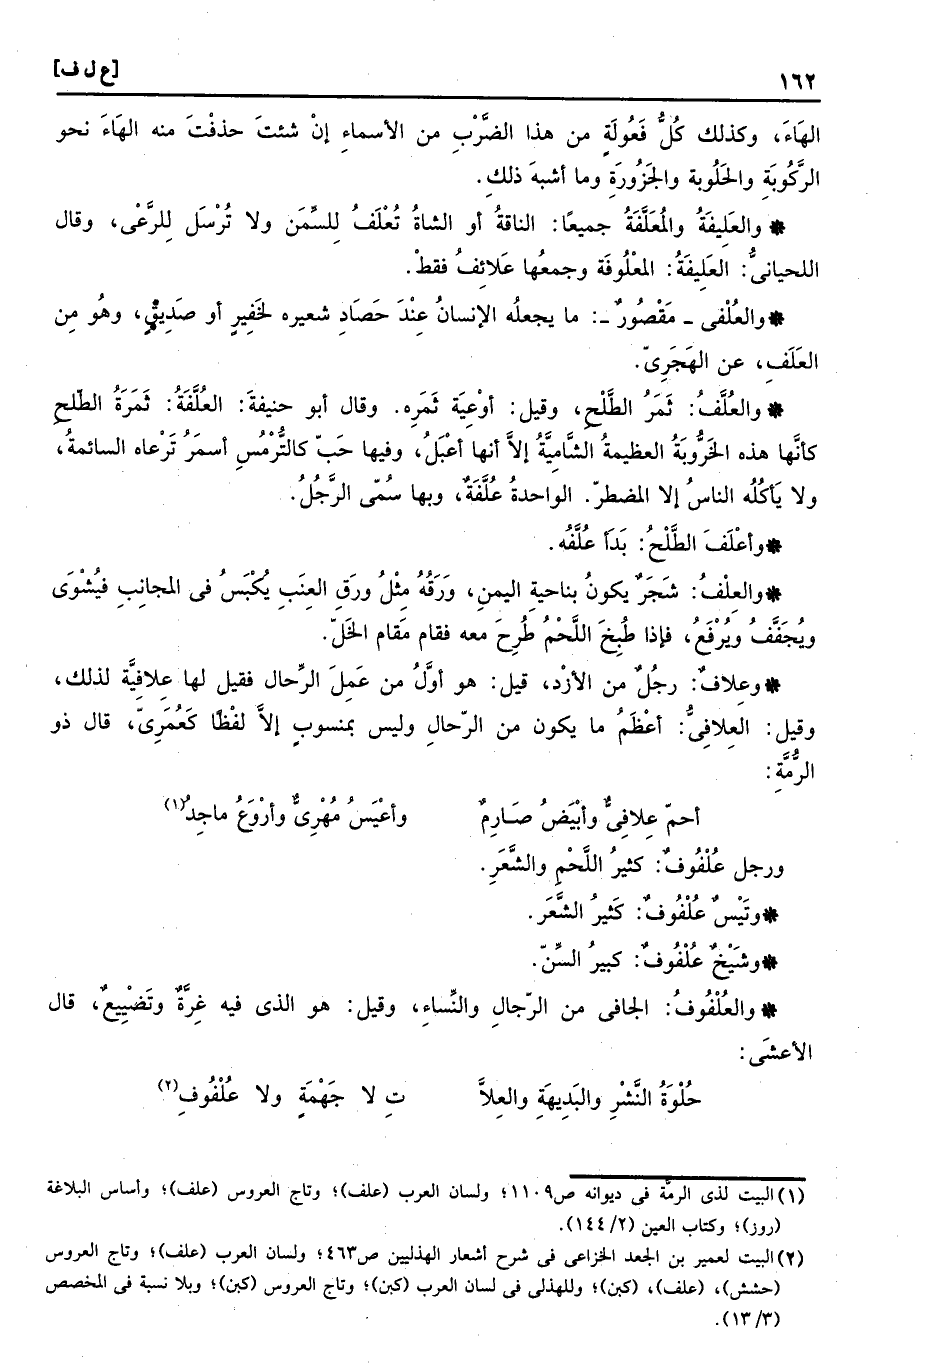 ١٦٢ [ع ل ف]
الهَاءَ، وكذلك كُلُّ فَعُولَةٍ من هذا الضَّرْبِ من الأسماءِ إنْ شئتَ حذفْتَ منه الهَاءَ نحو
الرَّكُوبَةِ والحَلُوبة والجَزُورَةِ وما أشبهَ ذلك.
* والعَلِيفَةُ والمُعَلَّفَةُ جميعًا: الناقةُ أو الشاةُ تُعْلَفُ للسِّمَن ولا تُرْسَل للرَّعْى، وقال
اللحيانىُّ: العَلِيفَةُ: المعْلُوفَة وجمعُها عَلائفُ فقطْ.
* والعُلْفى ـ مَقْصُورٌ ـ: ما يجعلُه الإنسانُ عِنْدَ حَصَادِ شعيره لخَفِيرٍ أو صَدِيقٍ، وهُو مِن
العَلَفِ، عن الهَجَرِىّ.
* والعُلَّفُ: ثَمَرُ الطَّلْحِ، وقيل: أوْعِيَة ثَمَرِه. وقال أبو حنيفةَ: العُلَّفَةُ: ثَمَرَةُ الطّلحِ
كأنَّها هذه الخَرُّوبَةُ العظيمةُ الشَّاميَّةُ إلاَّ أنها أعْبَلُ، وفيها حَبّ كالتُّرْمُسِ أسمَرُ تَرْعاه السائمةُ،
ولا يَأكُلُه الناسُ إلا المضطرّ. الواحدةُ عُلَّفَةٌ، وبها سُمّى الرَّجُلُ.
* وأعْلَفَ الطَّلْحُ: بَدَأ عُلَّفُه.
* والعِلْفُ: شَجَرٌ يكونُ بناحيةِ اليمنِ، وَرَقُهُ مِثْلُ ورَقِ العِنَبِ يُكْبَسُ فى المجانِبِ فيُشْوَى
ويُجَفَّفُ ويُرْفَعُ، فإذا طُبِخَ اللَّحْمُ طُرِحَ معه فقام مَقام الخَلّ.
* وعِلافٌ: رجلٌ من الأزْد، قيل: هو أوَّلُ من عَمِلَ الرِّحال فقيل لها عِلافيَّة لذلك،
وقيل: العِلافىُّ: أعْظَمُ ما يكون من الرّحالِ وليس بمنسوبٍ إلاَّ لفْظًا كَعُمَرِىّ، قال ذو
الرُّمَّةِ:
أحمّ عِلافىٌّ وأبْيَضُ صَارِمٌ وأعْيَسُ مُهْرِىٌّ وأرْوَعُ ماجِدُ(١)
ورجل عُلْفُوفٌ: كثيرُ اللَّحْمِ والشَّعَرِ.
* وتَيْسٌ عُلْفُوفٌ: كَثيرُ الشَّعَر.
* وشَيْخٌ عُلْفُوفٌ: كبيرُ السِّنّ.
* والعُلْفُوفُ: الجافى من الرّجالِ والنِّساء، وقيل: هو الذى فيه غِرَّةٌ وتَضْيِيعٌ، قال
الأعشَى:
حُلْوَةُ النَّشْرِ والبَدِيهَةِ والعِلاَّ تِ لا جَهْمَةٍ ولا عُلْفُوفِ(٢)
(١) البيت لذى الرمَّة فى ديوانه ص١١٠٩؛ ولسان العرب (علف)؛ وتاج العروس (علف)؛ وأساس البلاغة
(روز)؛ وكتاب العين (٢/ ١٤٤).
(٢) البيت لعمير بن الجعد الخزاعى فى شرح أشعار الهذليين ص٤٦٣؛ ولسان العرب (علف)؛ وتاج العروس
(حشش)، (علف)، (كبن)؛ وللهذلى فى لسان العرب (كبن)؛ وتاج العروس (كبن)؛ وبلا نسبة فى المخصص
(٣/ ١٣).